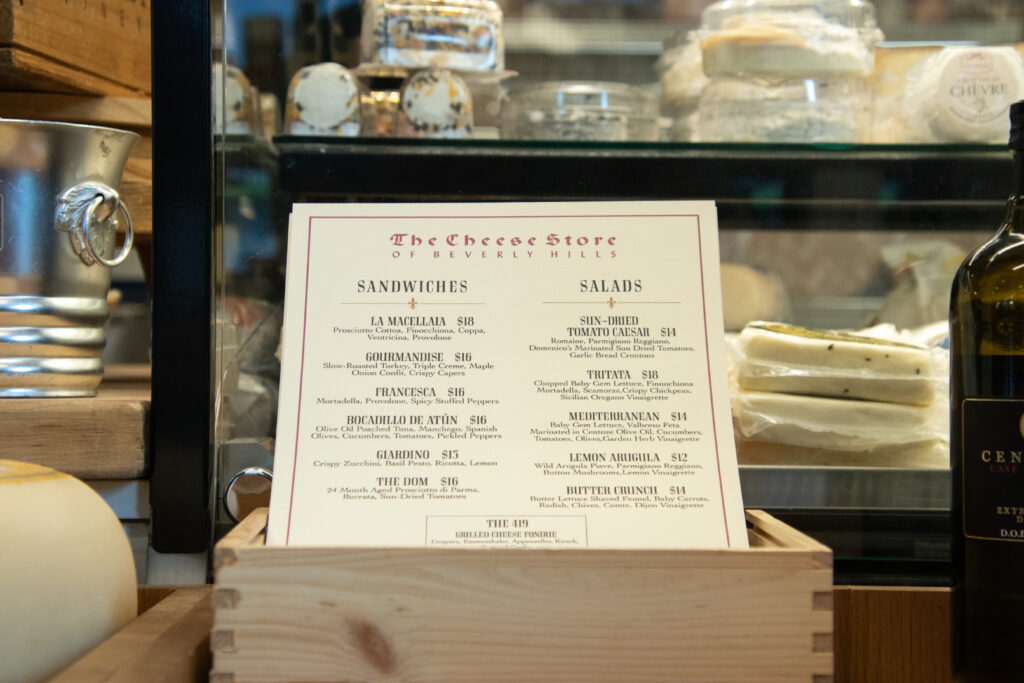 CHÈVRE
The Cheese Store
OF BEVERLY HILLS
SANDWICHES
LA MACELLAIA $18
Prosciutto Cottoa, Finocchiona, Coppa,
Ventricina, Provolone
GOURMANDISE $16
Slow-Roasted Turkey, Triple Creme, Maple
Onion Confit, Crispy Capers
FRANCESCA $16
Mortadella, Provolone, Spicy Stuffed Peppers
BOCADILLO DE ATÚN $16
Olive Oil Poached Tuna, Manchego, Spanish
Olives, Cucumbers, Tomatoes, Pickled Peppers
GIARDINO $15
Crispy Zucchini, Basil Pesto, Ricotta, Lemon
THE DOM $16
24 Month Aged Prosciutto di Parma,
Burrata, Sun-Dried Tomatoes
SALADS
SUN-DRIED
TOMATO CAESAR $14
Romaine, Parmigiano Reggiano,
Domenico's Marinated Sun Dried Tomatoes,
Garlic Bread Croutons
TRITATA $18
Chopped Baby Gem Lettuce, Finnochiona
Mortadella, Scamorza,Crispy Chickpeas,
Sicilian Oregano Vinaigrette
MEDITERRANEAN $14
Baby Gem Lettuce, Valbreso Feta
Marinated in Centoze Olive Oil, Cucumbers,
Tomatoes, Olives,Garden Herb Vinaigrette
LEMON ARUGULA $12
Wild Arugula Piave, Parmigiano Reggiano,
Button Mushrooms,Lemon Vinaigrette
BUTTER CRUNCH $14
Butter Lettuce Shaved Fennel, Baby Carrots,
Radish, Chives, Comte, Dijon Vinaigrette
THE 419
GRILLED CHEESE FONDUE
Gruyere, Emmenthaler, Appenzeller, Kirsch,
CEN
CASE
EXTR
D.O.